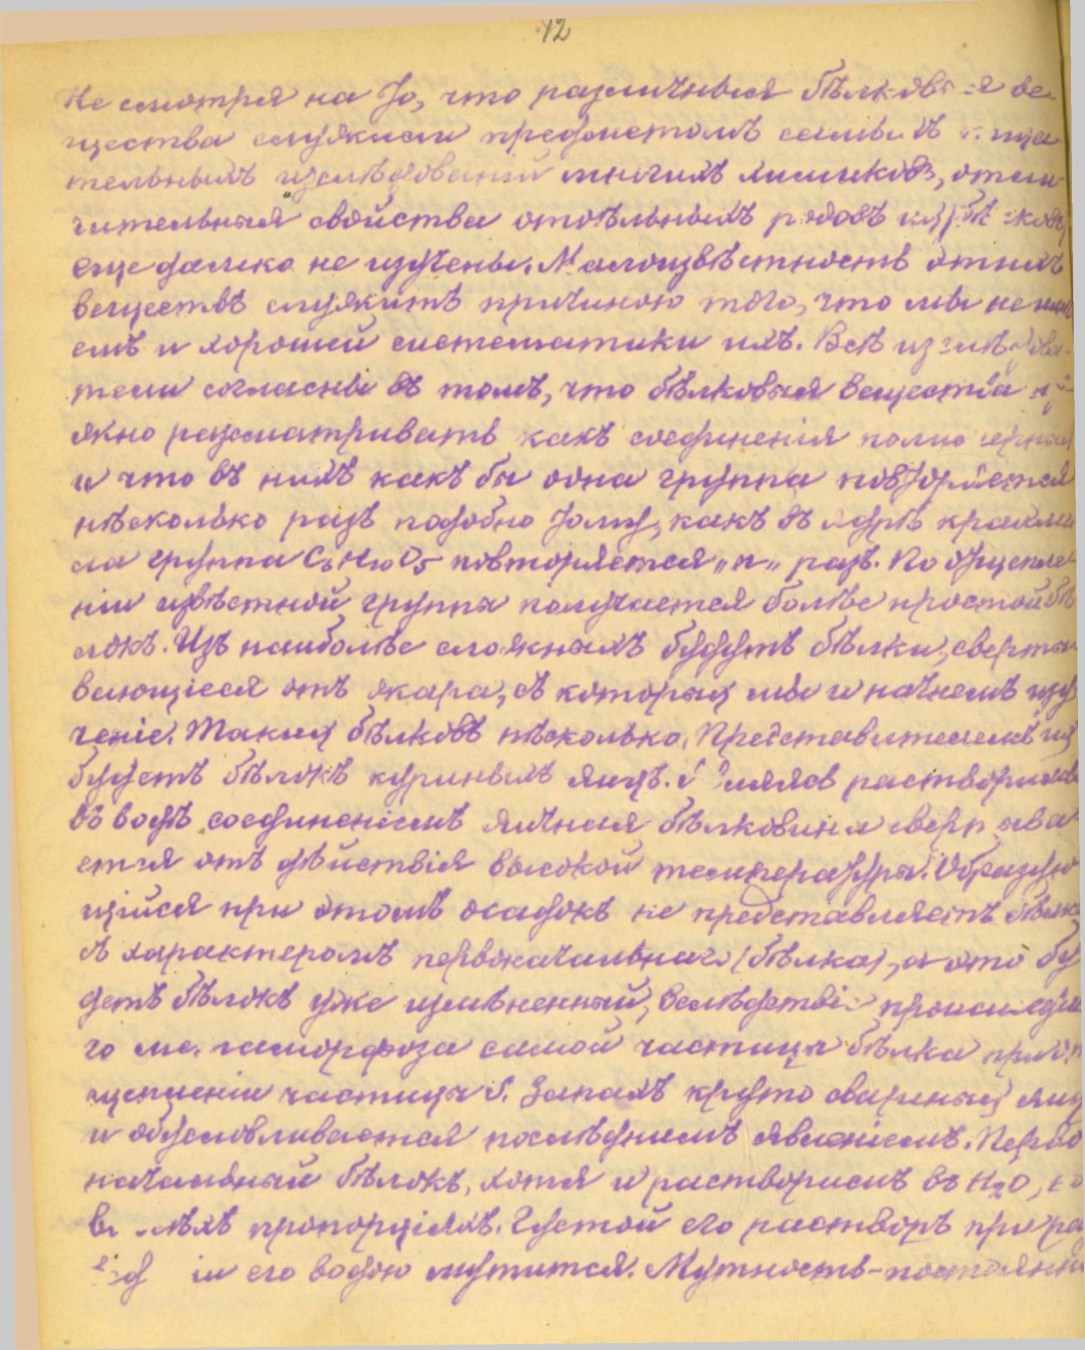 12
Не смотря на то, что различныя бѣлковыя ве
щества служили предметомъ самыхъ тща
тельныхъ изслѣдованій многихъ химиковъ, отли-
чительныя свойства отдѣльныхъ родовъ бѣлковъ
еще далеко не изучены. Малоизвѣстность этихъ
веществъ служитъ причиною того, что мы не имѣ
емъ и хорошей систематики ихъ. Всѣ изслѣдова-
тели согласны въ томъ, что бѣлковыя вещества мо
жно разсматривать какъ соединенія полимерныя
и что въ нихъ какъ бы одна группа повторяется
нѣсколько разъ подобно тому, какъ въ ядрѣ крахма
ла группа C6H10O5 повторяется „n„ разъ. По отщепле
ніи извѣстной группы получается болѣе простой бѣ
локъ. Изъ наиболѣе сложныхъ будутъ бѣлки, сверты
вающіеся отъ жара, съ которыхъ мы и начнемъ изу
ченіе. Такихъ бѣлковъ нѣсколько. Представителемъ ихъ
будетъ бѣлокъ куриныхъ яицъ. Являясь растворимымъ
въ водѣ соединеніемъ яичная бѣлковина сверты ва
ется отъ дѣйствія высокой температуры. Образую
щійся при этомъ осадокъ не представляетъ бѣлка
съ характеромъ первоначальнаго (бѣлка), а это бу
детъ бѣлокъ уже измѣненный, вслѣдствіе происшедша
го метаморфоза самой частицы бѣлка при от
щепленіи частицы S. Запахъ круто сваренныхъ яицъ
и обусловливается послѣднимъ явленіемъ. Перво
начальный бѣлокъ, хотя и растворимъ въ H2O, но
въ пропорціяхъ. Густой его растворъ при раз
его водою мутится. Мутность-постоянна